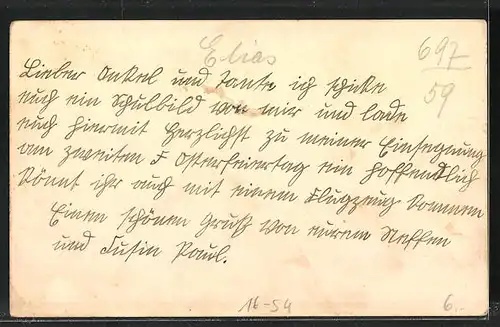 Elias
697
59
Lieber Onkel und Tante ich schicke
euch ein Schulbild von mir und lade
euch hiermit Herzlichst zu meiner Einsegnung
am zweiten F Osterfeiertag ein hoffendlich
könnt ihr auch mit einem Flugzeug kommen
Einen schönen Gruß von eurem Neffen
und Cusin Paul.
16-54
6.-